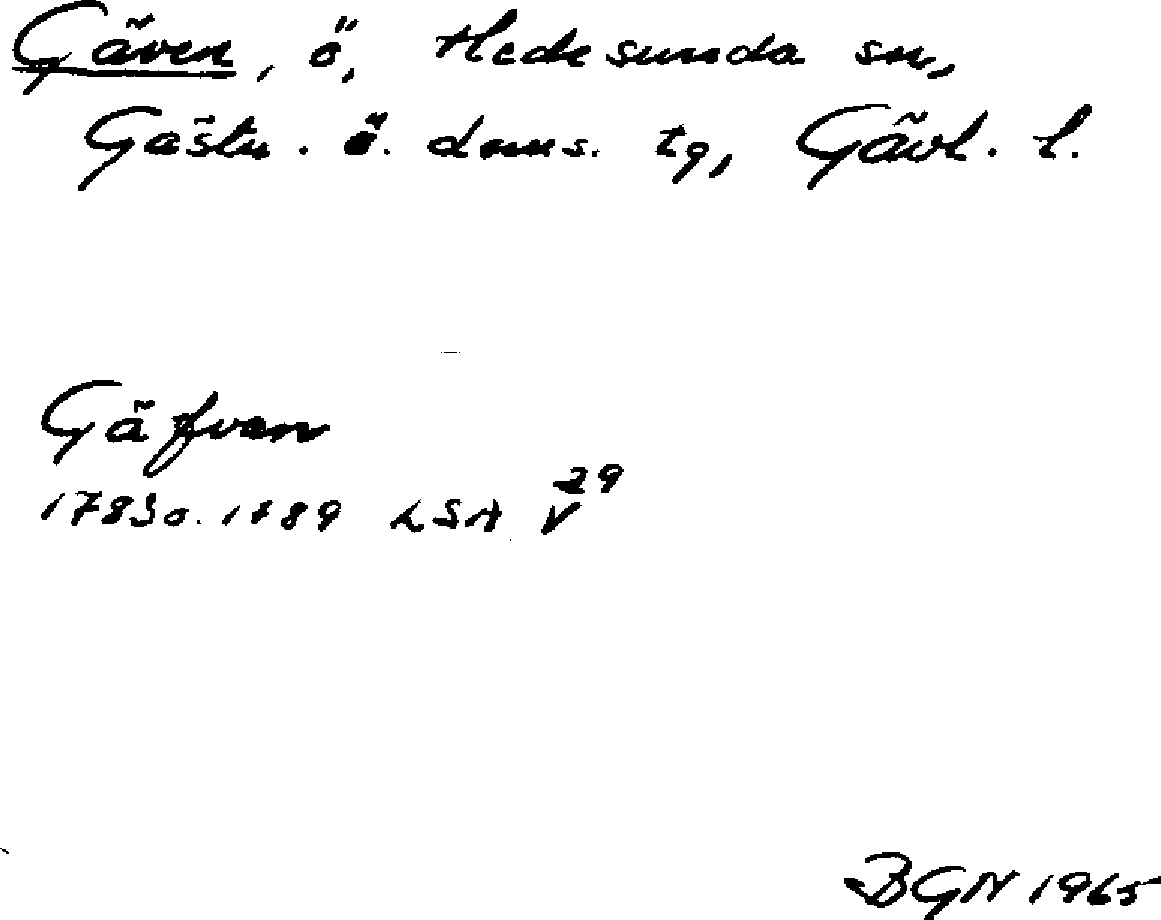 Gäven, ö, Hedesunda sn,
Gästr. ö. doms. tg, Gävl. l.
Gäfvan
1783 o. 1789 LSA V 29
BGN 1965